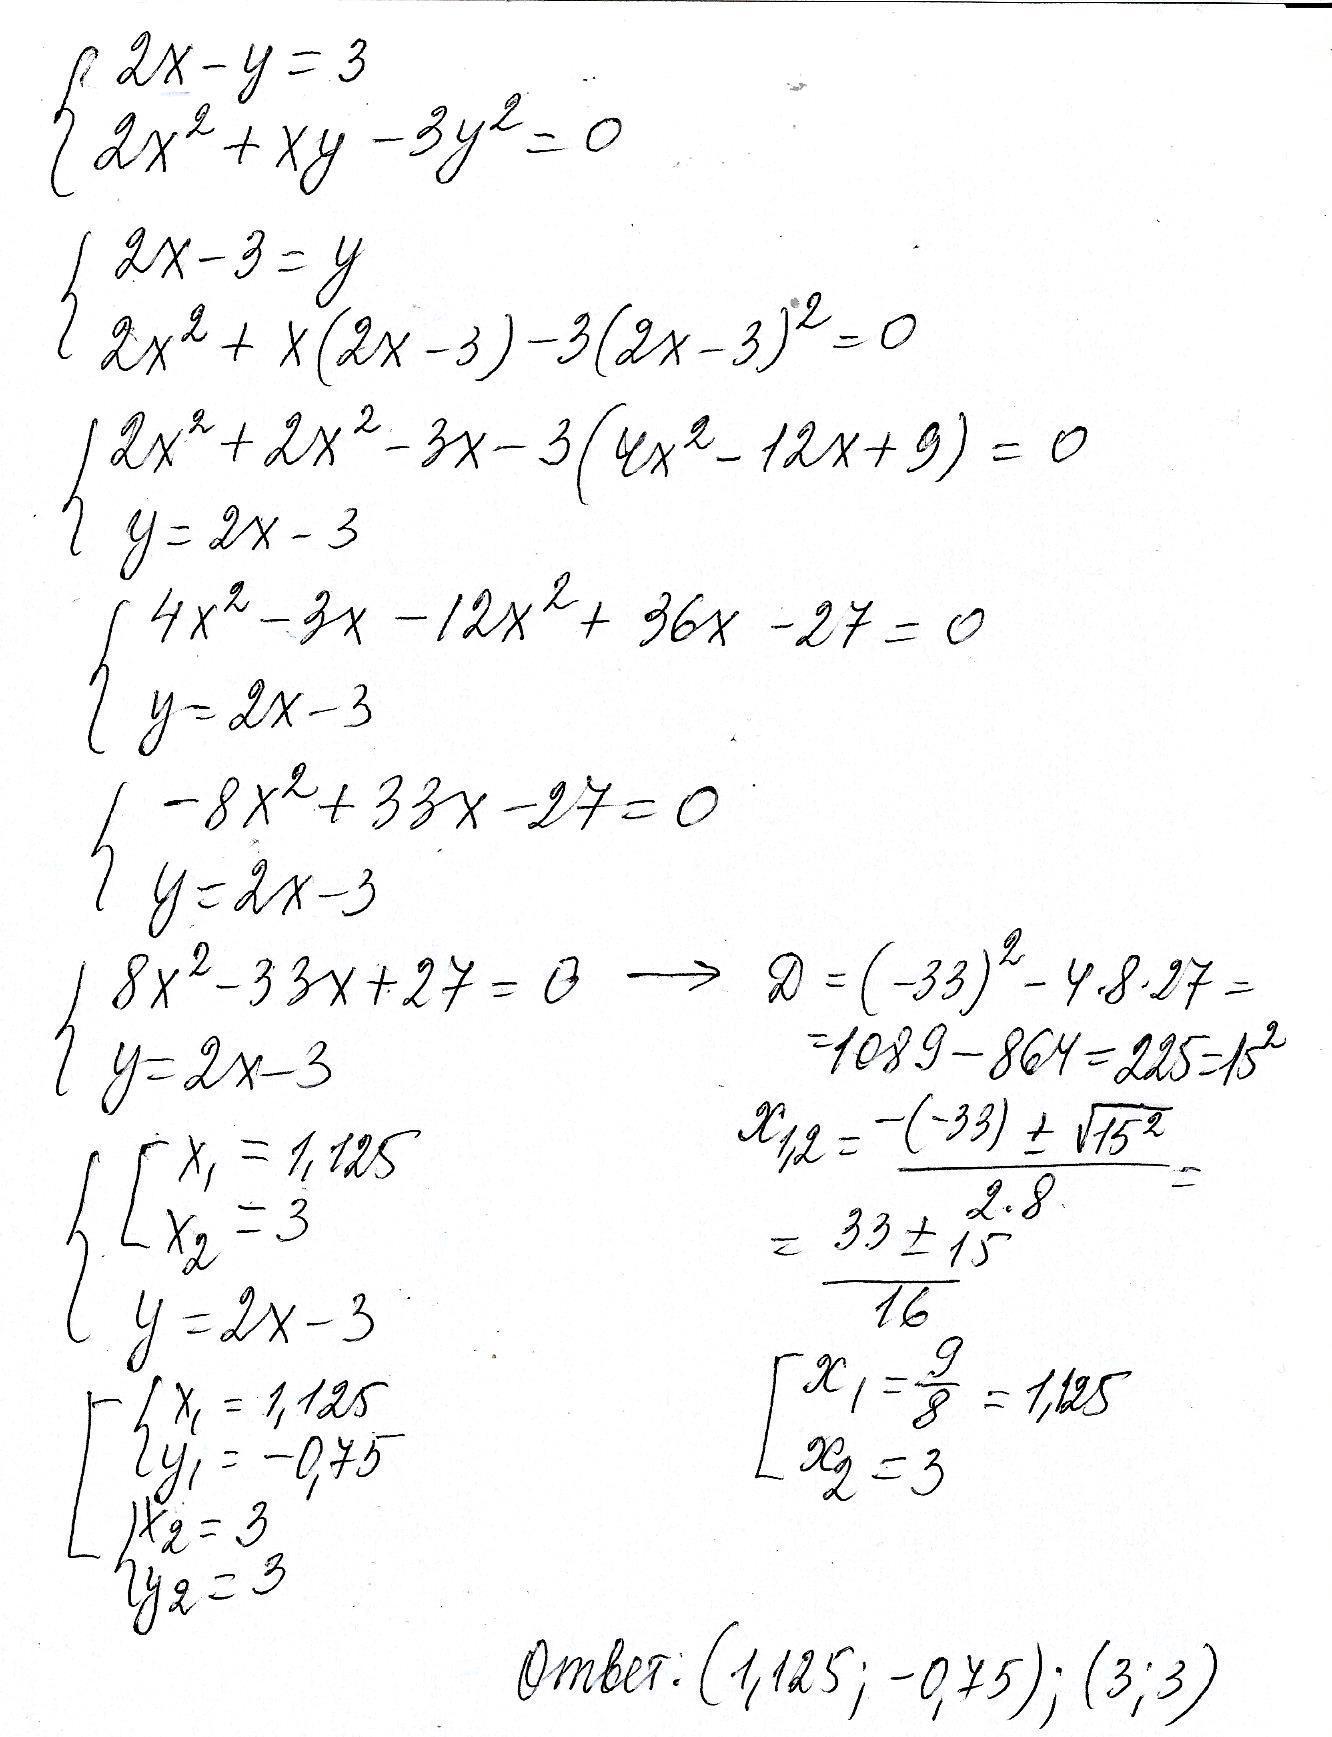 2x - y = 3
2x² + xy - 3y² = 0
2x - 3 = y
2x² + x(2x - 3) - 3(2x - 3)² = 0
2x² + 2x² - 3x - 3(4x² - 12x + 9) = 0
y = 2x - 3
4x² - 3x - 12x² + 36x - 27 = 0
y = 2x - 3
-8x² + 33x - 27 = 0
y = 2x - 3
8x² - 33x + 27 = 0 → D = (-33)² - 4·8·27 =
y = 2x - 3
= 1089 - 864 = 225 = 15²
x₁,₂ = (-(-33) ± √15²) / (2·8) =
= (33 ± 15) / 16
x₁ = 9/8 = 1,125
x₂ = 3
x₁ = 1,125
x₂ = 3
y = 2x - 3
x₁ = 1,125
y₁ = -0,75
x₂ = 3
y₂ = 3
Ответ: (1,125; -0,75); (3; 3)